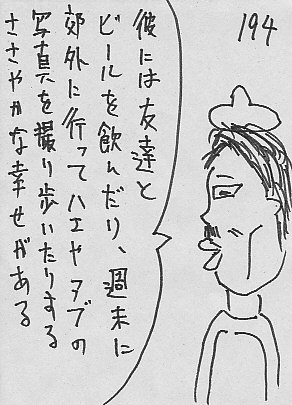 194
彼には友達と
ビールを飲んだり、週末に
郊外に行ってハエやアブの
写真を撮り歩いたりする
ささやかな幸せがある